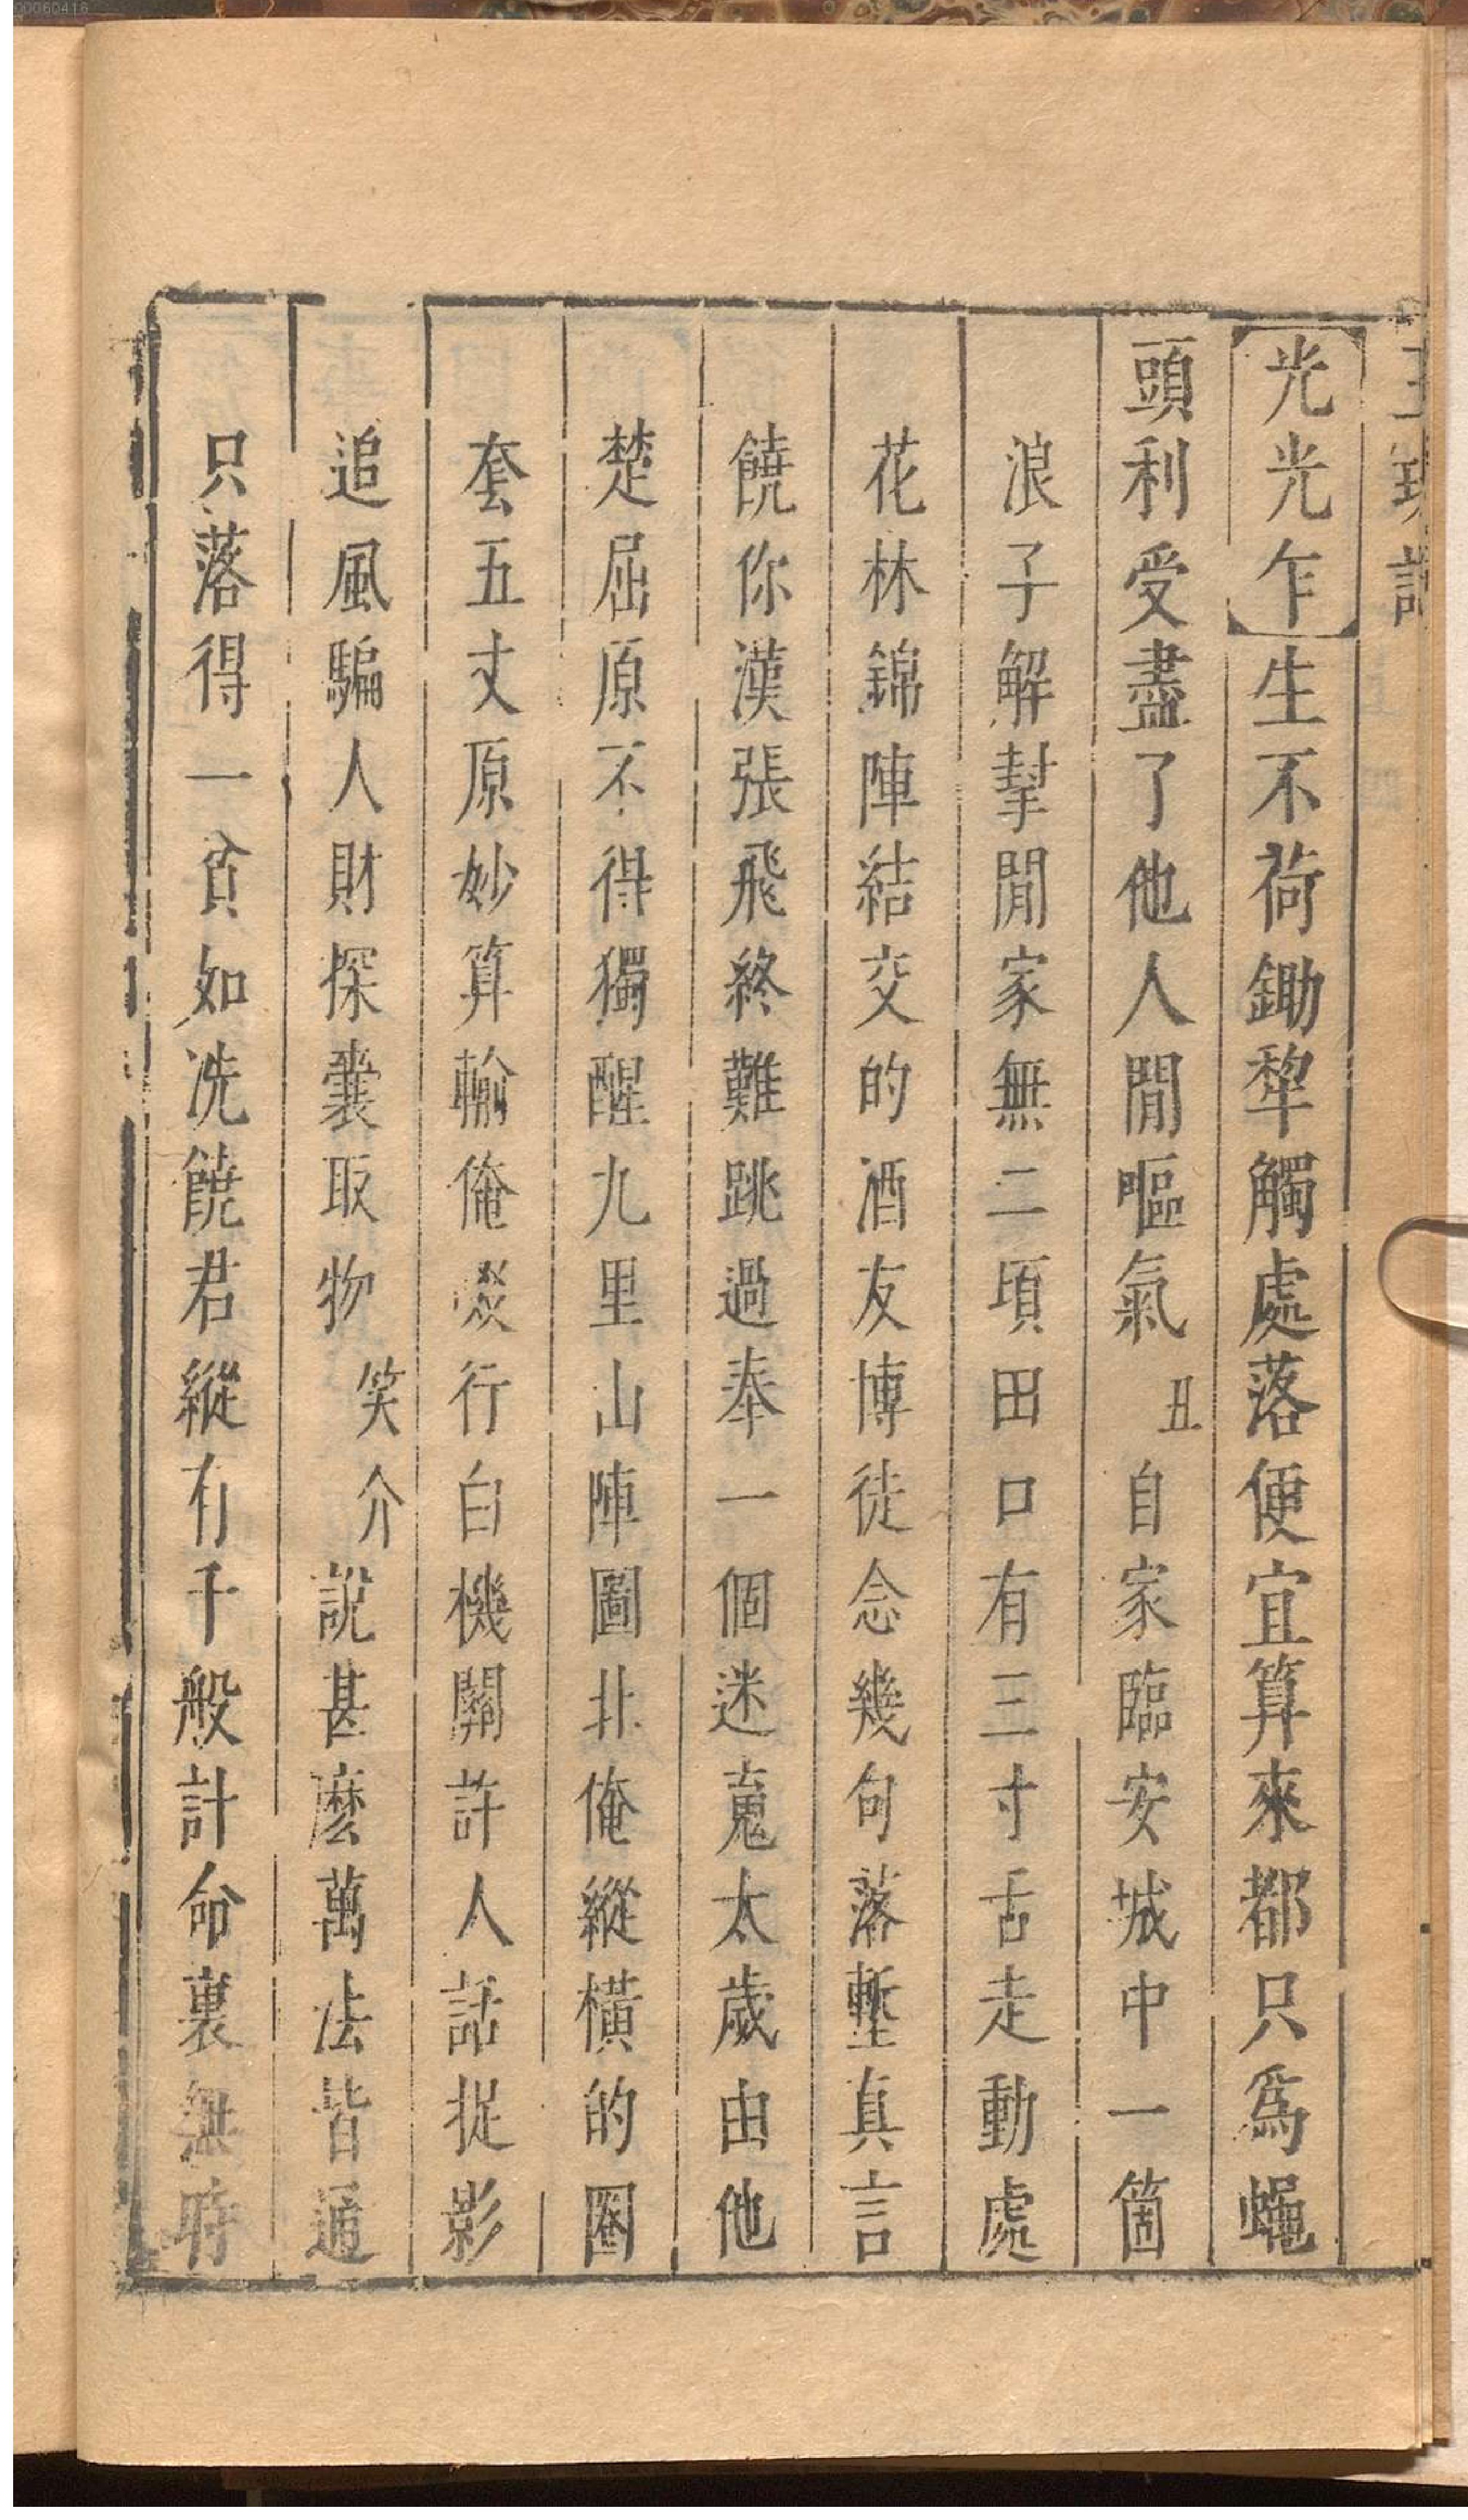 00060416
光光乍生不荷鋤犂觸處落便宜算來都只爲蠅
頭利受盡了他人閒嘔氣丑自家臨安城中一箇
浪子解幇閒家無二頃田口有三寸舌走動處
花林錦陣結交的酒友博徒念幾句落塹真言
饒你漢張飛終難跳過奉一個迷䰟太歲由他
楚屈原不得獨醒九里山陣圖北俺縱橫的圈
套五丈原妙算輸俺行白機關許人話捉影
追風騙人財探囊取物笑介說甚麽萬法皆通
只落得一貧如洗饒君縱有千般計命裏無時